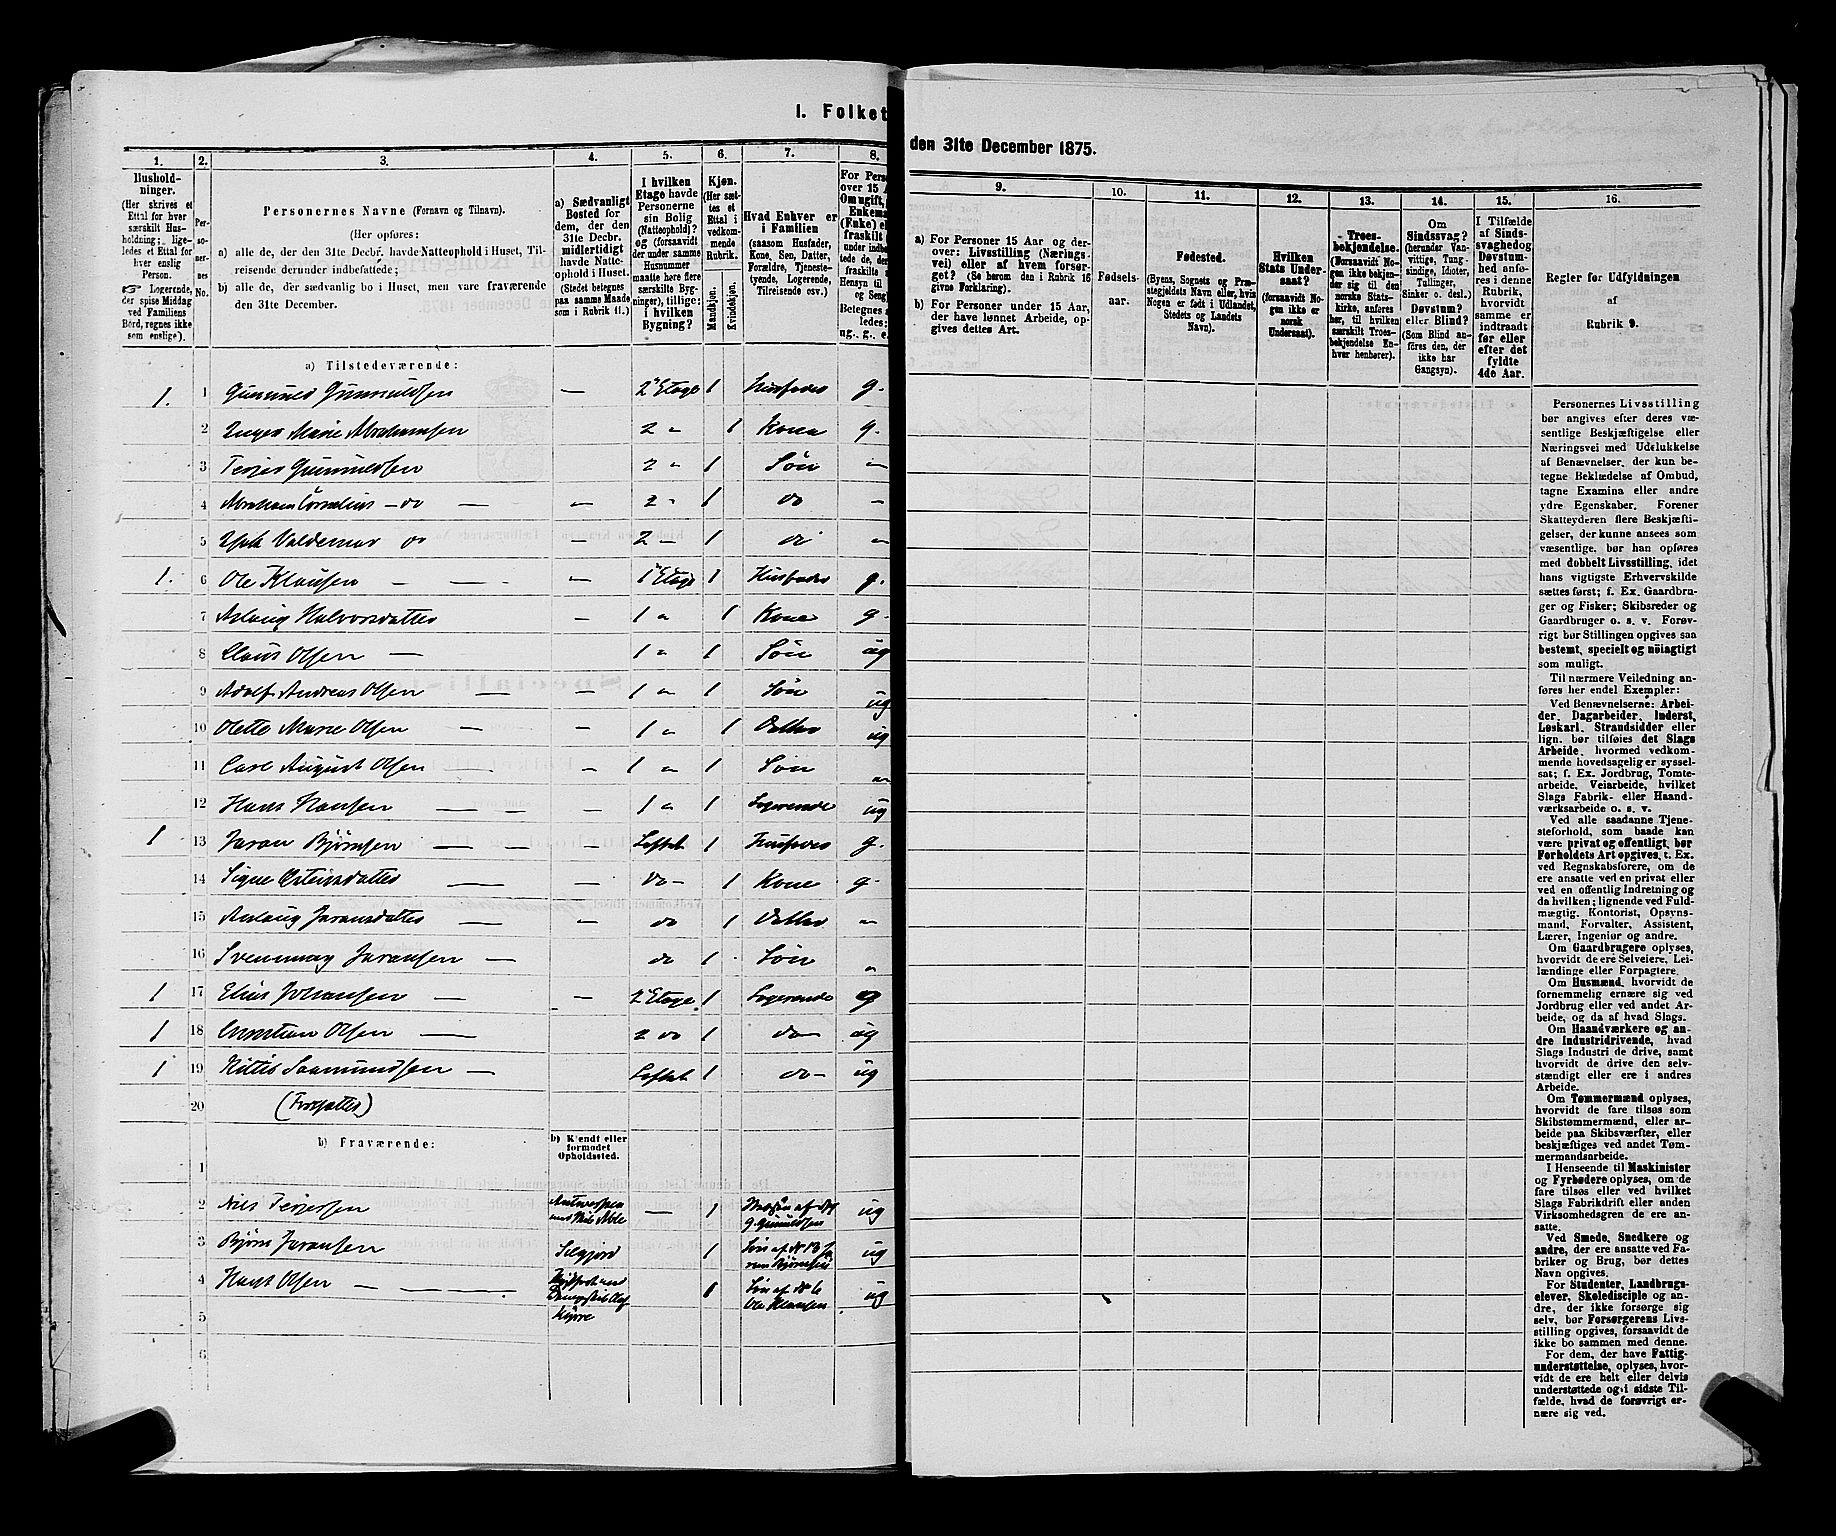 I. Folket
1.
2.
3.
4.
5.
6.
7.
8.
Hushold-
ninger.
(Her skrives et
Ettal for hver
særskilt Hus-
holdning; lige-
ledes et Ettal for
hver enslig
Person.
☞ Logerende,
der spise Middag
ved Familiens
Bord, regnes ikke
som enslige).
Per-
so-
ner-
nes
No.
Personernes Navne (Fornavn og Tilnavn).
(Her opføres:
a) alle de, der den 31te Decbr. havde Natteophold i Huset, Til-
reisende derunder indbefattede;
b) alle de, der sædvanlig bo i Huset, men vare fraværende
den 31te December.
a) Sædvanligt
Bosted for
dem, der den
31te Decbr.
midlertidigt
havde Natte-
ophold i Huset.
(Stedet betegnes
paa samme Maade
som i Rubrik 11.)
I hvilken
Etage havde
Personerne
sin Bolig
(Natteophold)?
og (forsaavidt
der under samme
Husnummer
maatte høre flere
særskilte Byg-
ninger), tillige:
i hvilken
Bygning?
Kjøn.
(Her sæt-
tes et
Ettal i
vedkom-
mende
Rubrik.
Mandkjøn.
Kvindekjøn.
Hvad Enhver er
i Familien
(saasom Husfader,
Kone, Søn, Datter,
Forældre, Tjeneste-
tyende, Logerende,
Tilreisende osv.)
For Pers
over 15 A
Om ugift,
Enkema
(Enke) e
fraskilt
a) Tilstedeværende:
1. 1 Gunnuld Gunnuldsen — 2 Etage 1 Husfader g.
2 Inger Marie Abrahamsen 2 " 1 Kone g.
3 Terjes Gunnuldsen 2 " 1 Søn —
4 Abraham Cornelius - do — — 2 - 1 do —
5 Valdemar do — 2 — 1 do —
1. 6 Ole Klausen — — — 1 Etage 1 Husfader g.
7 Aslaug Halvorsdatter — 1 " 1 Kone g.
8 Claus Olsen — 1 " 1 Søn ug
9 Adolf Andreas Olsen — — 1 " 1 Søn ug
10 Olette Marie Olsen — — 1 " 1 Datter ug
11 Carl August Olsen — — 1 " 1 Søn —
12 Hans Hansen — — 1 " 1 Logerende ug
1 13 Jøran Bjørnsen — — — Loftet 1 Husfader g.
14 Signe Eivindsdatter — — do - 1 Kone g.
15 Aslaug Jøransdatter — — do 1 Datter —
16 Svennung Jøransen — do 1 Søn —
1 17 Elias Johansen — — 2 Etage 1 Logerende g
1 18 Christian Olsen — 2 do 1 do — ug
1 19 Kittil Saamundsen — Loftet 1 do — ug
20 (Forsatter)
b) Fraværende:
b) Kjendt eller
formodet
Opholdssted.
1
2 Nils Terjesen — 1 ug
3 Bjørn Jøransen Silgjord 1 Søn af No 13 Jø
ran Bjørnsen ug
4 Hans Olsen — — 1 Søn af No 6
Ole Klausen ug
5
6
den 31te December 1875.
9.
10.
11.
12.
13.
14.
15.
16.
a) For Personer 15 Aar og der-
over: Livsstilling (Nærings-
vei) eller af hvem forsør-
get? (Se herom den i Rubrik 16
givne Forklaring.)
b) For Personer under 15 Aar,
der have lønnet Arbeide, op-
gives dettes Art.
Fødsels-
aar.
Fødested.
(Byens, Sognets og Præ-
stegjeldets Navn eller, hvis
Nogen er født i Udlandet,
Stedets og Landets
Navn).
Hvilken
Stats Under-
saat?
(forsaavidt No-
gen ikke er
norsk
Undersaat).
Troes-
bekjendelse.
(Forsaavidt No-
gen ikke bekjen-
der sig til den
norske Stats-
kirke, anføres
her, til hvilken
særskilt Troes-
bekjendelse En-
hver henhører).
Om
Sindssvag?
(herunder Van-
vittige, Tung-
sindige, Idioter,
Tullinger,
Sinker o. desl.)
Døvstum?
eller Blind?
(Som Blind an-
føres den, der
ikke har
Gangsyn).
I Tilfælde
af Sinds-
svaghed og
Døvstum-
hed anfø-
res i denne
Rubrik,
hvorvidt
samme er
indtraadt
før eller
efter det
fyldte
4de Aar.
Regler for Udfyldningen
af
Rubrik 9.
Personernes Livsstilling
bør angives efter deres væ-
sentlige Beskjæftigelse eller
Næringsvei med Udelukkelse
af Benævnelser, der kun be-
tegne Beklædelse af Ombud,
tagne Examina eller andre
ydre Egenskaber. Forener
Skatteyderen flere Beskjæfti-
gelser, der kunne ansees som
væsentlige, bør han opføres
med dobbelt Livsstilling, idet
hans vigtigste Erhvervskilde
sættes først; f. Ex. Gaardbru-
ger og Fisker; Skibsreder og
Gaardbruger o. s. v. Forøv-
rigt bør Stillingen opgives saa
bestemt, specielt og nøiagtigt
som muligt.
Til nærmere Veiledning an-
føres her endel Exempler:
Ved Benævnelserne: Arbei-
der, Dagarbeider, Inderst,
Løskarl, Strandsidder eller
lign. bør tilføies det Slags
Arbeide, hvormed vedkom-
mende hovedsagelig er syssel-
sat; f. Ex. Jordbrug, Tomte-
arbeide, Veiarbeide, hvilket
Slags Fabrik- eller Haand-
værksarbeide o. s. v.
Ved alle saadanne Tjene-
steforhold, som baade kan
være privat og offentligt, bør
Forholdets Art opgives, t. Ex.
ved Regnskabsførere, om de
ere ansatte ved en privat eller
ved en offentlig Indretning og
da hvilken; lignende ved Fuld-
mægtig, Kontorist, Opsyns-
mand, Forvalter, Assistent,
Lærer, Ingeniør og andre.
Om Gaardbrugere oplyses,
hvorvidt de ere Selveiere, Lei-
lændinge eller Forpagtere.
Om Husmænd, hvorvidt de
fornemmelig ernære sig ved
Jordbrug eller ved andet Ar-
beide, og da af hvad Slags.
Om Haandværkere og an-
dre Industridrivende, hvad
Slags Industri de drive, samt
hvorvidt de drive den selv-
stændigt eller ere i andres
Arbeide.
Om Tømmermænd oplyses,
hvorvidt de fare tilsøs som
Skibstømmermænd, eller ar-
beide paa Skibsværfter, eller
beskjæftiges ved andet Tøm-
mermandsarbeide.
I Henseende til Maskinister
og Fyrbødere oplyses, om de
fare tilsøs eller ved hvilket
Slags Fabrikdrift eller anden
Virksomhedsgren de ere an-
satte.
Ved Smede, Snedkere og
andre, der ere ansatte ved Fa-
briker og Brug, bør dettes
Navn opgives.
For Studenter, Landbrugs-
elever, Skoledisciple og an-
dre, der ikke forsørge sig
selv, bør Forsørgerens Livs-
stilling opgives, forsaavidt de
ikke bo sammen med denne.
For dem, der have Fattig-
understøttelse, oplyses, hvor-
vidt de ere helt eller delvis
understøttede og i sidste Til-
fælde, hvad de forøvrigt er-
nære sig ved.